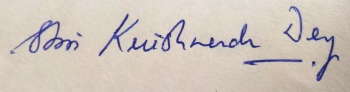 Shri Krishnendu Dey